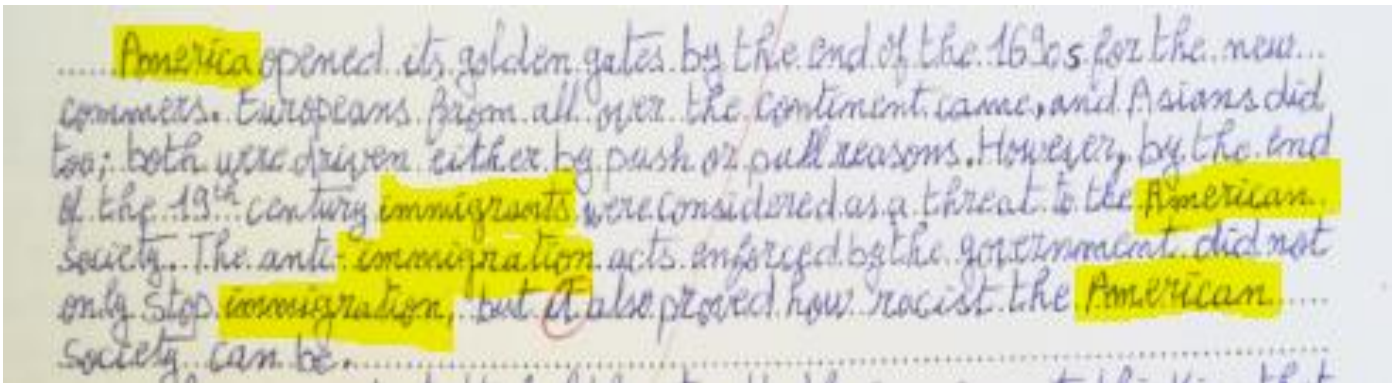 America opened its golden gates by the end of the 1690s for the new
commers. Europeans from all over the continent came, and Asians did
too; both were driven either by push or pull reasons. However, by the end
of the 19th century immigrants were considered as a threat to the American
society. The anti-immigration acts enforced by the government did not
only stop immigration, but it also proved how racist the American
society can be.